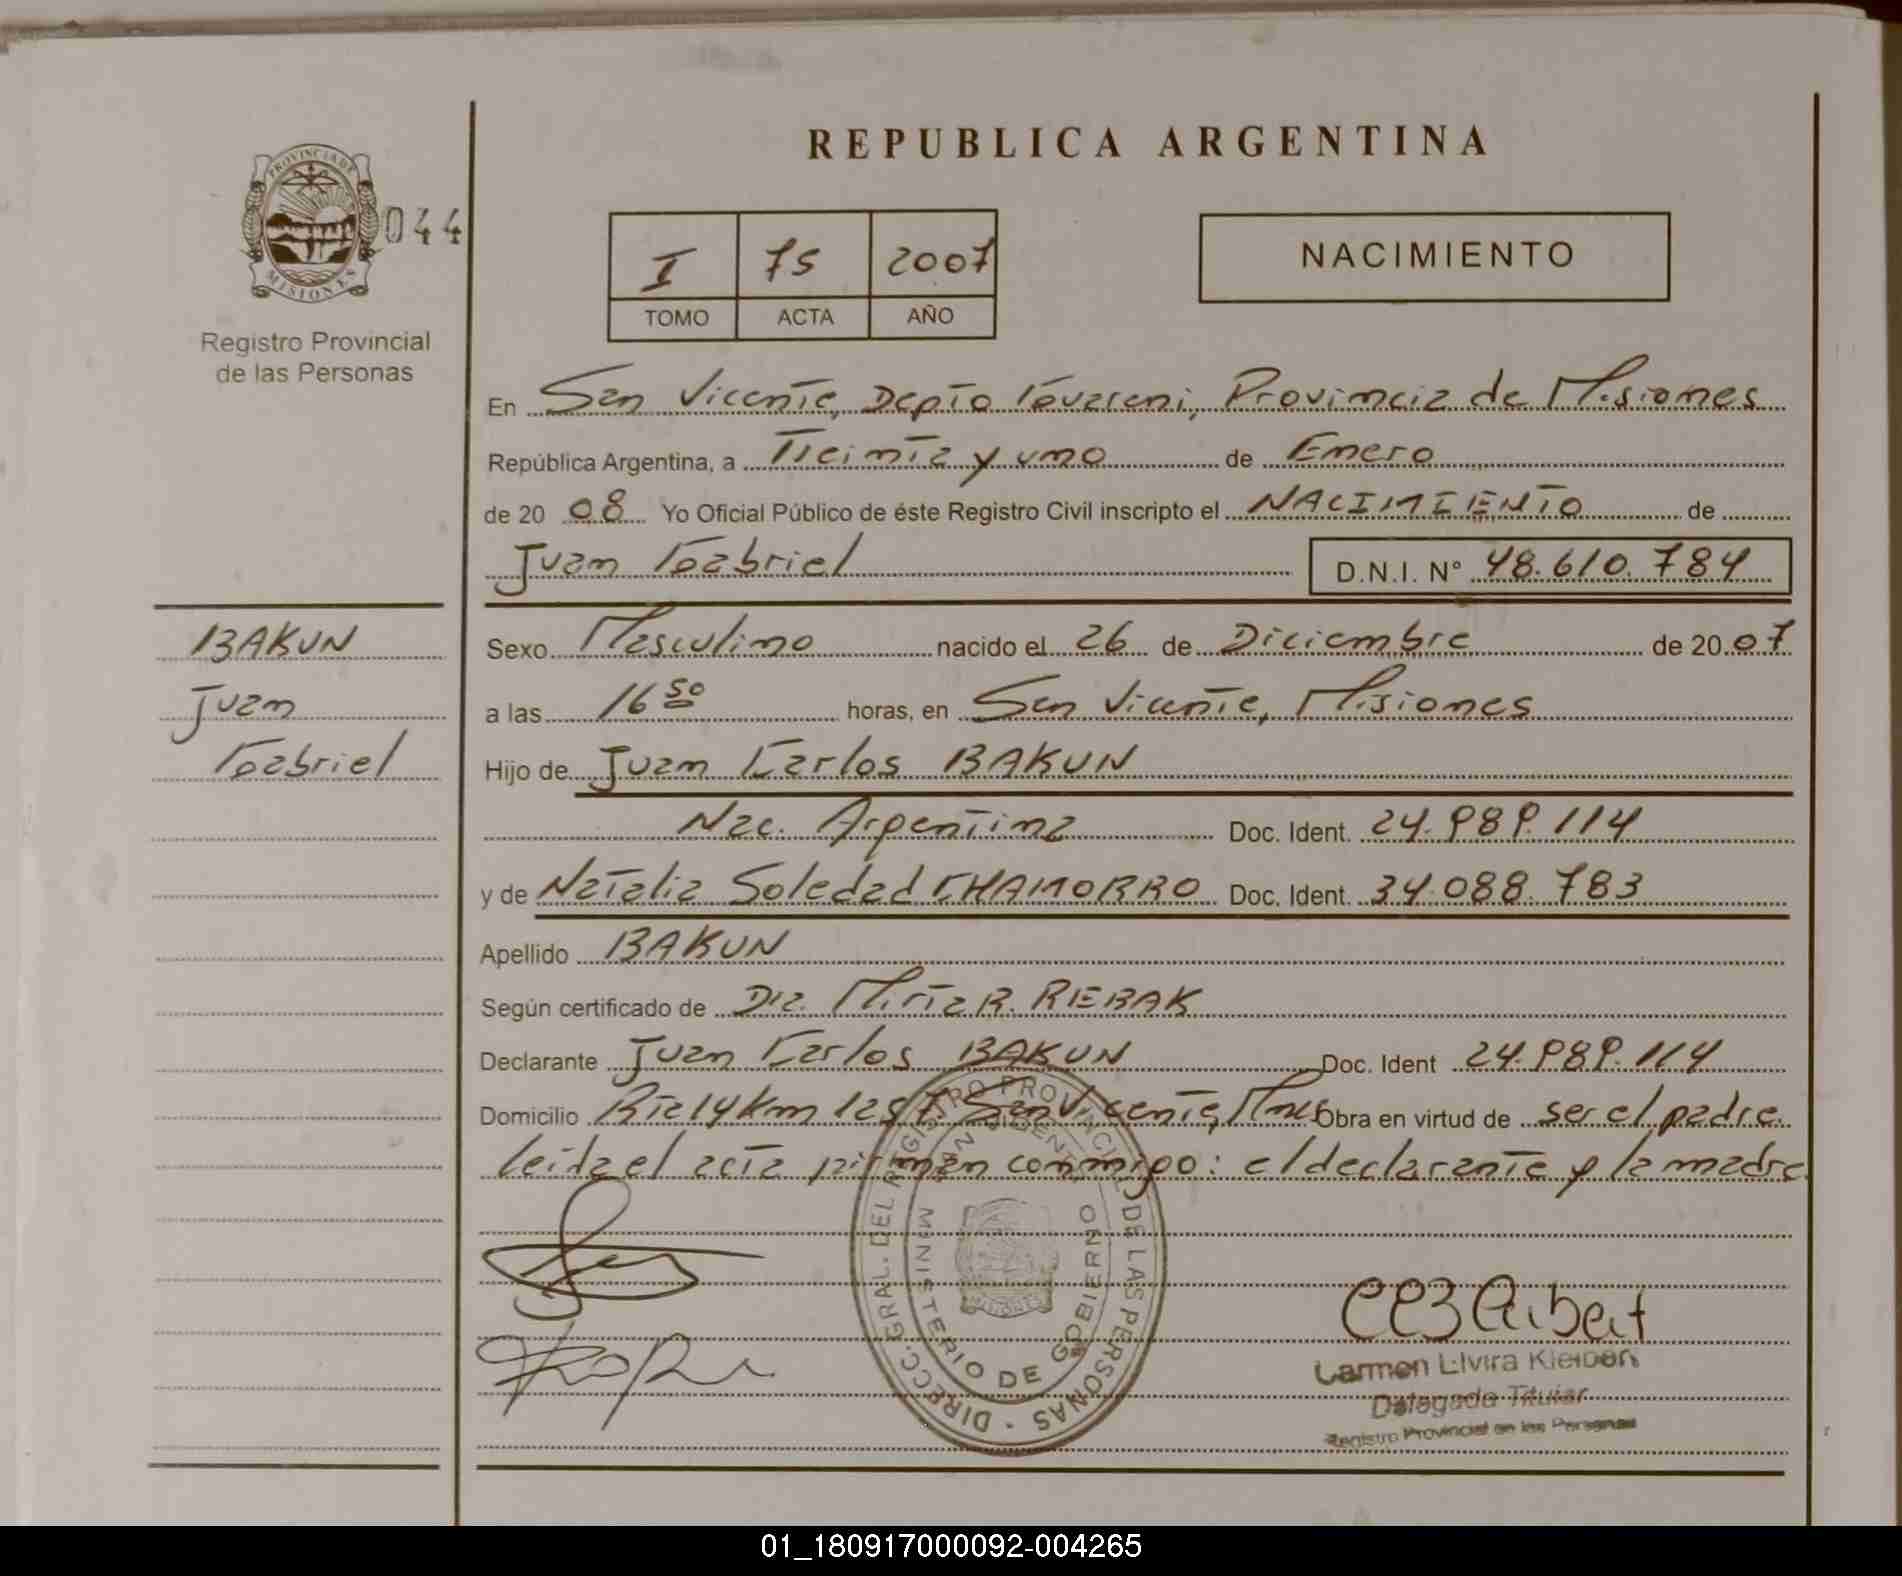 REPUBLICA ARGENTINA
PROVINCIA DE
MISIONES
044
Registro Provincial
de las Personas
I 75 2007
TOMO ACTA AÑO
NACIMIENTO
En San Vicente, Depto Guarani, Provincia de Misiones
República Argentina, a Treinta y uno de Enero
de 20 08 Yo Oficial Público de éste Registro Civil inscripto el NACIMIENTO de
Juan Gabriel D.N.I. N° 48.610.784
BAKUN
Juan
Gabriel
Sexo Masculino nacido el 26 de Diciembre de 20 07
a las 16 50 horas, en San Vicente, Misiones
Hijo de Juan Carlos BAKUN
Nac. Argentina Doc. Ident. 24.989.114
y de Natalia Soledad CHAMORRO Doc. Ident. 34.088.783
Apellido BAKUN
Según certificado de Dra. Mirta R. REBAK
Declarante Juan Carlos BAKUN Doc. Ident 24.989.114
Domicilio Rta 14 Km 1257 San Vicente, Mnes Obra en virtud de ser el padre.
leida el acta firman conmigo: el declarante y la madre
DIRECC. GRAL. DEL REGISTRO PROVINCIAL DE LAS PERSONAS
SAN VICENTE
MINISTERIO DE GOBIERNO
MISIONES
Carmen Elvira
Delegada Titular
Registro Provincial de las Personas
01_180917000092-004265